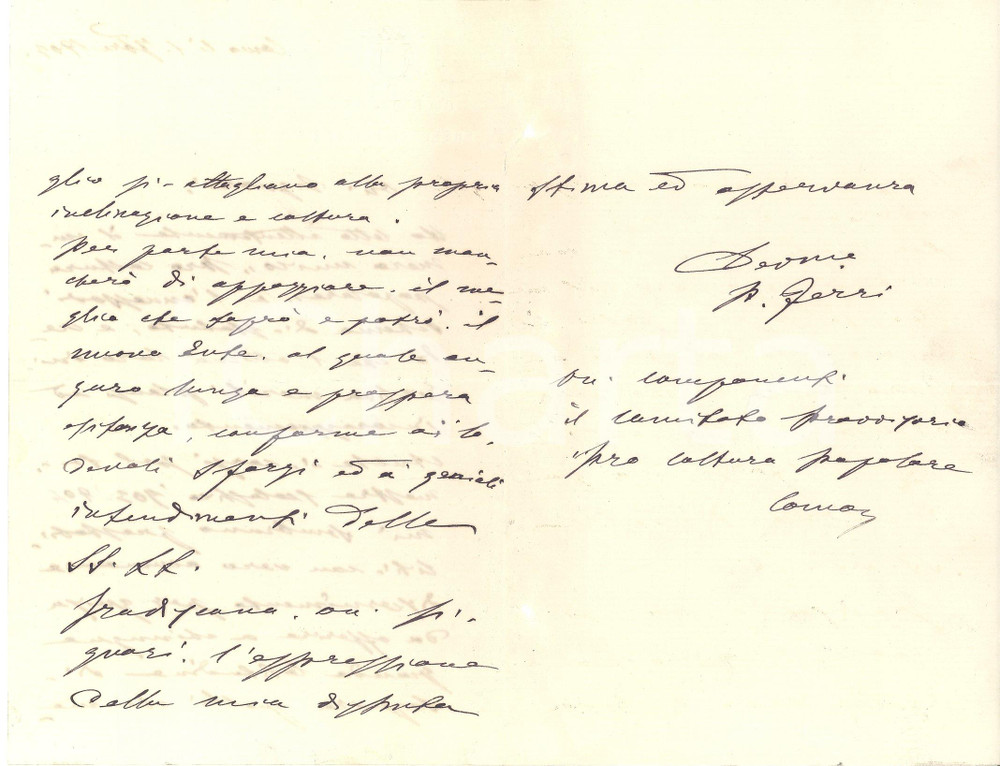 glio si attagliano alla propria
inclinazione e coltura.
Per parte mia, non man-
cherò di appoggiare, il me-
glio che saprò e potrò, il
nuovo Ente, al quale au-
guro lunga e prospera
esistenza, conforme ai lo-
devoli sforzi ed ai geniali
intendimenti delle
SS. LL.
Gradiscano, on. si-
gnori, l'espressione
della mia distinta
stima ed osservanza
Devmo
P. Ferri
On. componenti
il comitato provvisorio
"Pro coltura popolare
Como